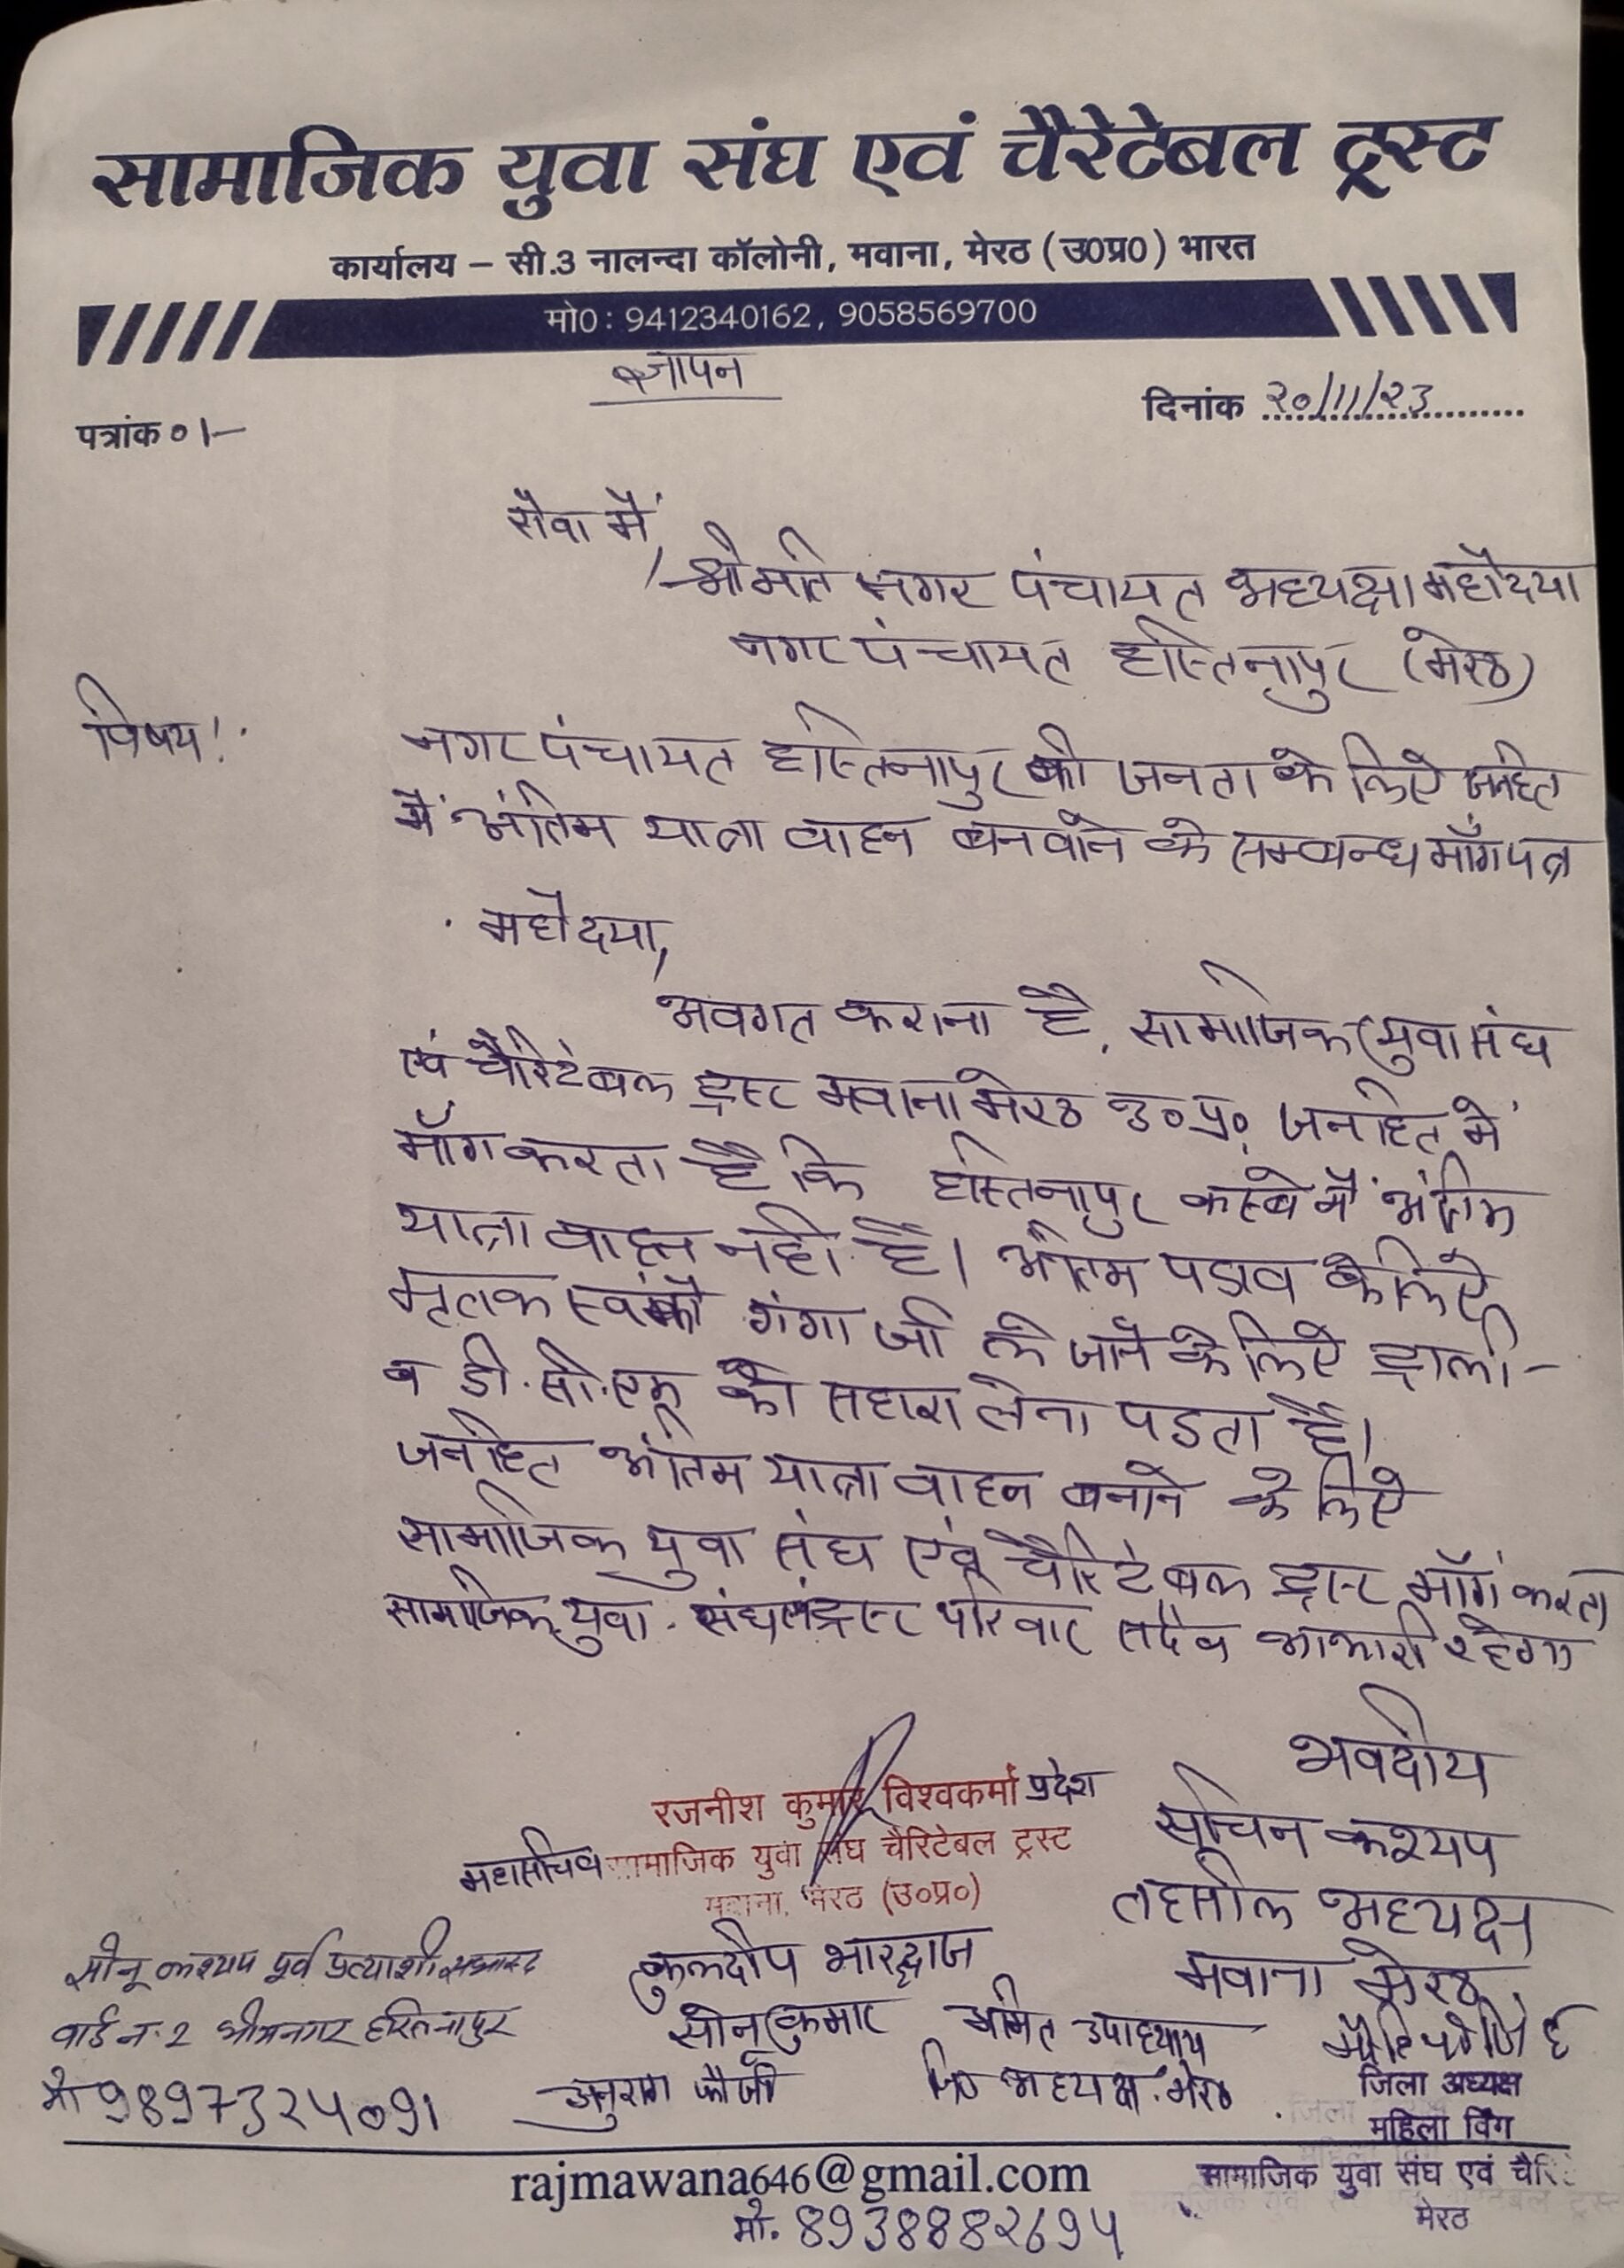 सामाजिक युवा संघ एवं चैरेटेबल ट्रस्ट
कार्यालय – सी.3 नालन्दा कॉलोनी, मवाना, मेरठ (उ0प्र0) भारत
मो0: 9412340162, 9058569700
ज्ञापन
पत्रांक ०1–
दिनांक २०/11/२३
सेवा में,
श्रीमति नगर पंचायत अध्यक्षा महोदया
नगर पंचायत हस्तिनापुर (मेरठ)
विषय:
नगर पंचायत हस्तिनापुर की जनता के लिऐ जनहित
में अंतिम यात्रा वाहन बनवाने के सम्बन्ध माँग पत्र
महोदया,
अवगत कराना है, सामाजिक युवा संघ
एवं चैरिटेबल ट्रस्ट मवाना मेरठ उ०प्र० जनहित में
माँग करता है कि हस्तिनापुर कस्बे में अंतिम
यात्रा वाहन नही है। अंतिम पडाव के लिऐ
मृतक को गंगा जी ले जाने के लिऐ ट्राली–
व डी.सी.एम का सहारा लेना पडता है।
जनहित अंतिम यात्रा वाहन बनाने के लिऐ
सामाजिक युवा संघ एवं चैरिटेबल ट्रस्ट माँग करता
सामाजिक युवा संघ ट्रस्ट परिवार सदैव आभारी रहेगा
भवदीय
रजनीश कुमार विश्वकर्मा प्रदेश
सचिन कश्यप
महासचिव सामाजिक युवा संघ चैरिटेबल ट्रस्ट
मवाना, मेरठ (उ०प्र०)
तहसील अध्यक्ष
मवाना मेरठ
सोनू कश्यप पूर्व प्रत्याशी सभासद
वार्ड न. 2 भीमनगर हस्तिनापुर
मो 9897324091
कुलदीप भारद्वाज
सोनू कुमार
अनुराग फौजी
अमित उपाध्याय
जि० अध्यक्ष मेरठ
जिला अध्यक्ष
महिला विंग
सामाजिक युवा संघ एवं
मेरठ
rajmawana646@gmail.com
मो. 8938882694